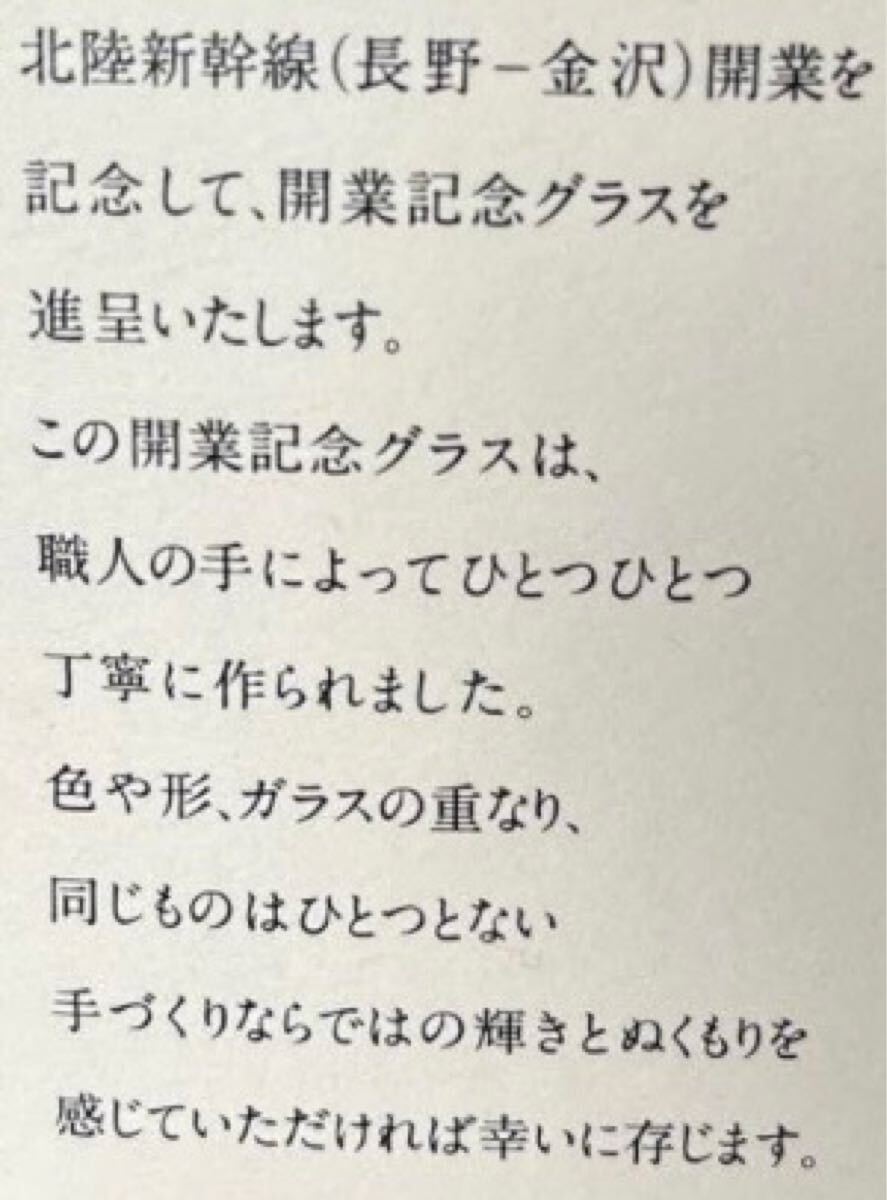 北陸新幹線(長野－金沢)開業を
記念して、開業記念グラスを
進呈いたします。
この開業記念グラスは、
職人の手によってひとつひとつ
丁寧に作られました。
色や形、ガラスの重なり、
同じものはひとつとない
手づくりならではの輝きとぬくもりを
感じていただければ幸いに存じます。